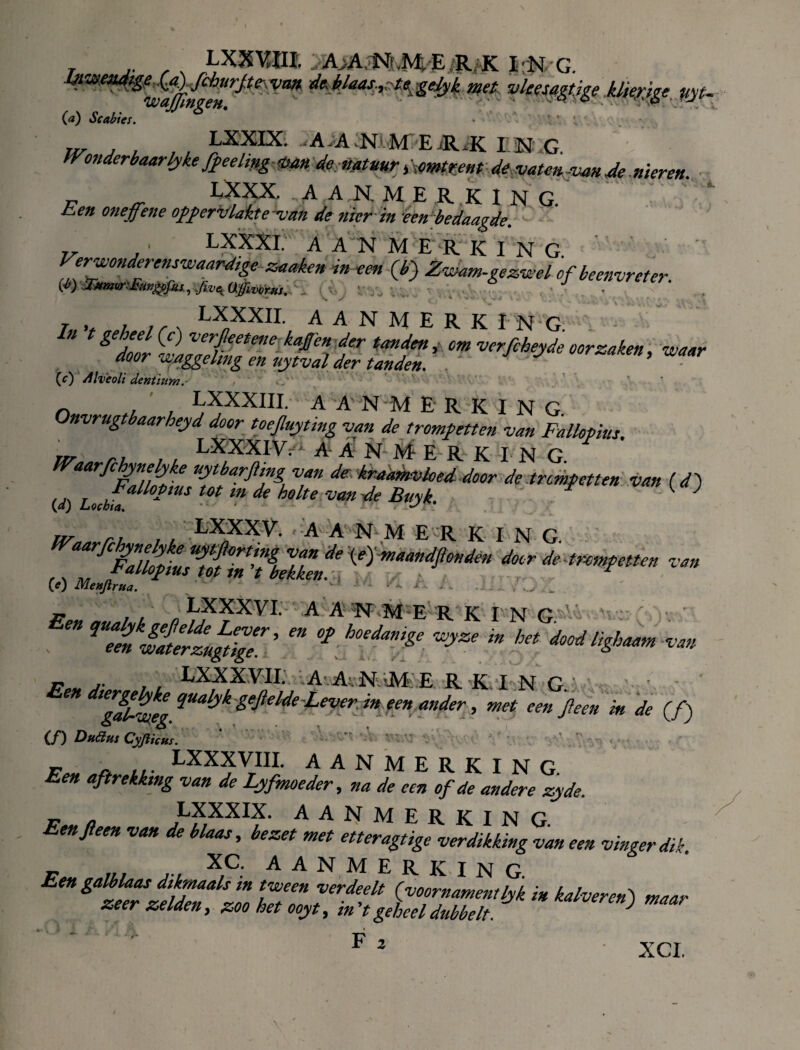 LXXVIII. AANMERKING.
Inwendige (a) schurfte van de blaas, te gelyk met vleesagtige klierige uyt-
wassingen.
(a) Scabies.
LXXIX. AANMERKING.
Wonderbaarlyke speeling van de natuur, omtrent de vaten van de nieren.
LXXX. AANMERKING.
Een oneffene oppervlakte van de nier in een bedaagde.
LXXXI. AANMERKING.
Verwonderenswaardige zaaken in een (b) Zwam-gezwel of beenvreter.
(b) Tumor Fungosus, sive Ossivorus.
LXXXII. AANMERKING.
In 't geheel (c) versleetene kassen der tanden, om verscheyde oorzaken, waar
door waggeling en uytval der tanden.
(c) Alveoli dentium.
LXXXIII. AANMERKING.
Onvrugtbaarheyd door toesluyting van de trompetten van Fallopius.
LXXXIV. AANMERKING.
Waarschynelyke uytbarsting van de kraamvloed door de trompetten van (d)
Fallopius tot in de holte van de Buyk.
(d) Lochia.
LXXXV. AANMERKING.
Waarschynelyke uytstorting van de (e) maandstonden door de trompetten van
Fallopius tot in 't bekken.
(e) Menstrua.
LXXXVI. AANMERKING.
Een qualyk gestelde Lever, en op hoedanige wyze in het dood lighaam van
een waterzugtige.
LXXXVII. AANMERKING.
Een diergelyke qualyk gestelde Lever in een ander, met een steen in de (f)
gal-weg.
(f) Ductus Cysticus.
LXXXVIII. AANMERKING.
Een aftrekking van de Lyfmoeder, na de een of de andere zyde.
LXXXIX. AANMERKING.
Een steen van de blaas, bezet met etteragtige verdikking van een vinger dik.
XC. AANMERKING.
Een galblaas dikmaals in tween verdeelt (voornamentlyk in kalveren) maar
zeer zelden, zoo het ooyt, in 't geheel dubbelt.
F 2
XCI.